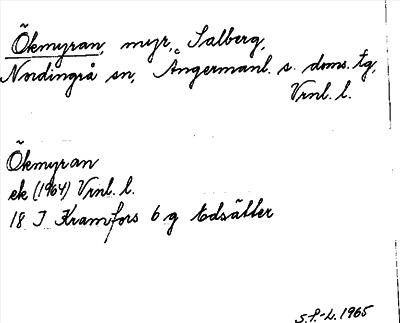 Ökmyran, myr, Salberg,
Nordingrå sn, Ångermanl. s. doms. tg,
Vrnl. l.
Ökmyran
ek (1964) Vrnl. l.
18 J Kramfors 6 g Edsätter
S.F.-L. 1965